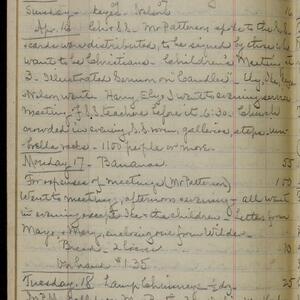 Sunday - Keyes Nelson
Apr. 16 S.S. Mr Patterson spoke to the S.S.
cards were distributed, to be signed by those who
want to be Christians. Children's Meeting at
3 - Illustrated Sermon on "Candles" - Ely, She, Keyes
Nelson went. Harry, Ely & I went to evening service
Meeting of S.S. teachers before it 6:30. Church
crowded in evening, S.S. room, galleries, steps, um-
brella racks - 1100 people or more.
Monday 17 - Bananas 55
For expenses of meetings (Mr Patterson) 1 00
Went to meeting, afternoon & evening - all went
in evening except She & the children - Letters from
Mayo & Mary, enclosing one from Wilder
Bread - 2 loaves 10
On hand $1.35
Tuesday, 18. Lamp Chimneys - 2 dz. 25